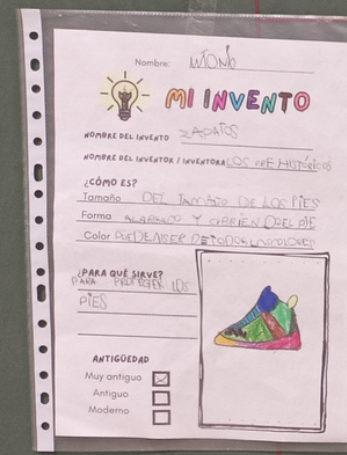 Nombre: ANTONIO
MI INVENTO
NOMBRE DEL INVENTO ZAPATOS
NOMBRE DEL INVENTOR / INVENTORA LOS PREHISTÓRICOS
¿CÓMO ES?
Tamaño DEL TAMAÑO DE LOS PIES
Forma ALARGADO Y DEL PIE
Color PUEDEN SER DE TODOS LOS COLORES
¿PARA QUÉ SIRVE?
PARA PROTEGER LOS
PIES
ANTIGÜEDAD
Muy antiguo
Antiguo
Moderno